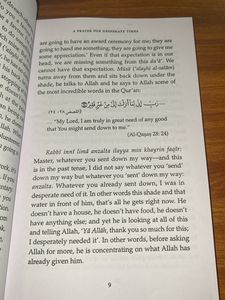 A PRAYER FOR DESPERATE TIMES
are going to have an award ceremony for me; they are
going to hand me something; they are going to give me
some appreciation.' Even if that expectation is in our
head, we are missing something from this du'ā'. We
cannot have that expectation. Mūsā ('alayhi al-salām)
turns away from them and sits back down under the
shade, he talks to Allah and he says to Allah some of
the most incredible words in the Qur'an:
"My Lord, I am truly in great need of any good
that You might send down to me."
(Al-Qaṣaṣ 28: 24)
Rabbī innī limā anzalta ilayya min khayrin faqīr:
Master, whatever you sent down my way—and this
is in the past tense, I did not say whatever you 'send'
down my way but whatever you 'sent' down my way:
anzalta. Whatever you already sent down, I was in
desperate need of it. In other words this shade and that
water in front of him, that's all he gets right now. He
doesn't have a house, he doesn't have food, he doesn't
have anything else; and yet he is looking at all of this
and telling Allah, 'Yā Allāh, thank you so much for this;
I desperately needed it'. In other words, before asking
Allah for more, he is concentrating on what Allah has
already given him.
9